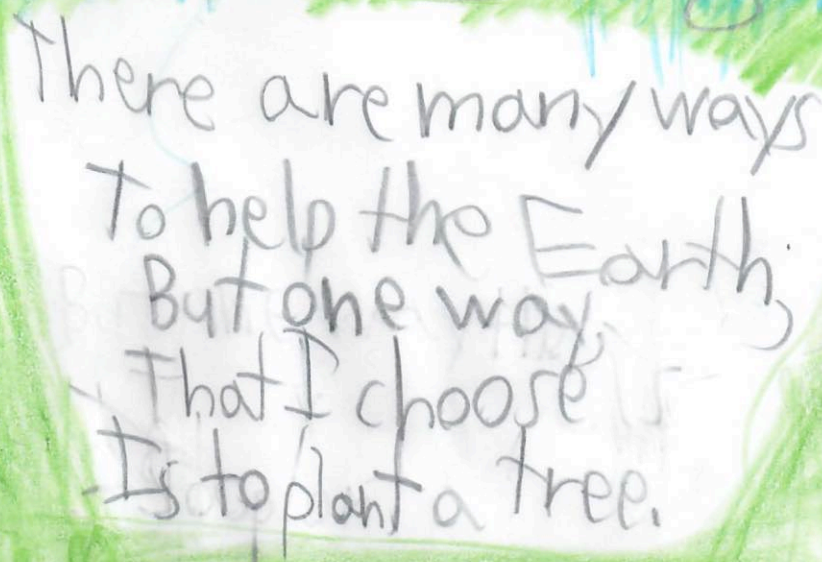 There are many ways
To help the Earth,
But one way,
That I choose
Is to plant a tree.